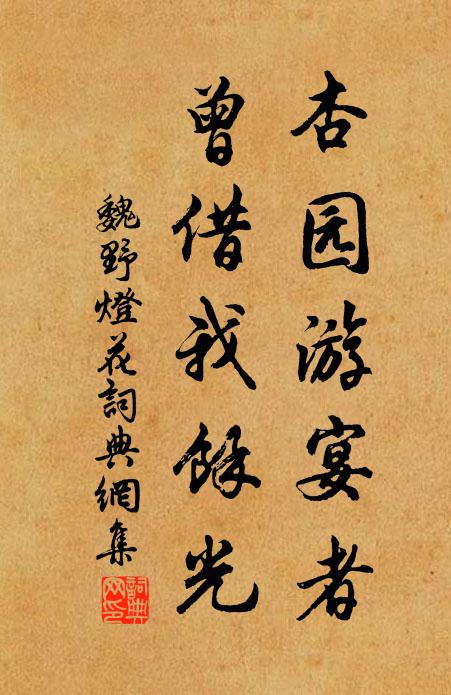 杏园游宴者
曾借我餘光
魏野燈花詞典網集
詞典网印